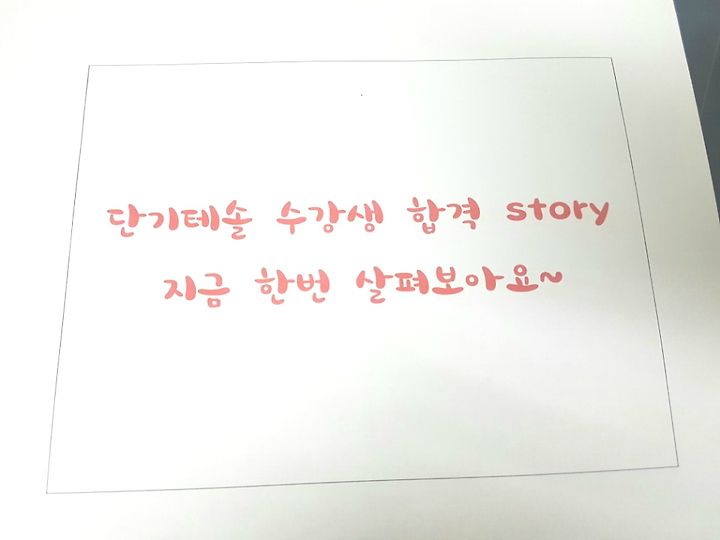 단기테솔 수강생 합격 story
지금 한번 살펴보아요~